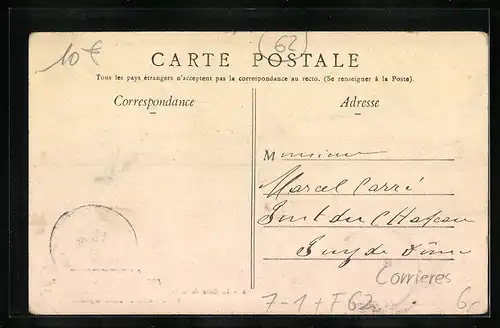 10€
(62)
CARTE POSTALE
Tous les pays étrangers n'acceptent pas la correspondance au recto. (Se renseigner à la Poste).
Correspondance
Adresse
Monsieur
Marcel Carré
Pont du Château
Puy de Dôme
Corrieres
7-1+F62
6,